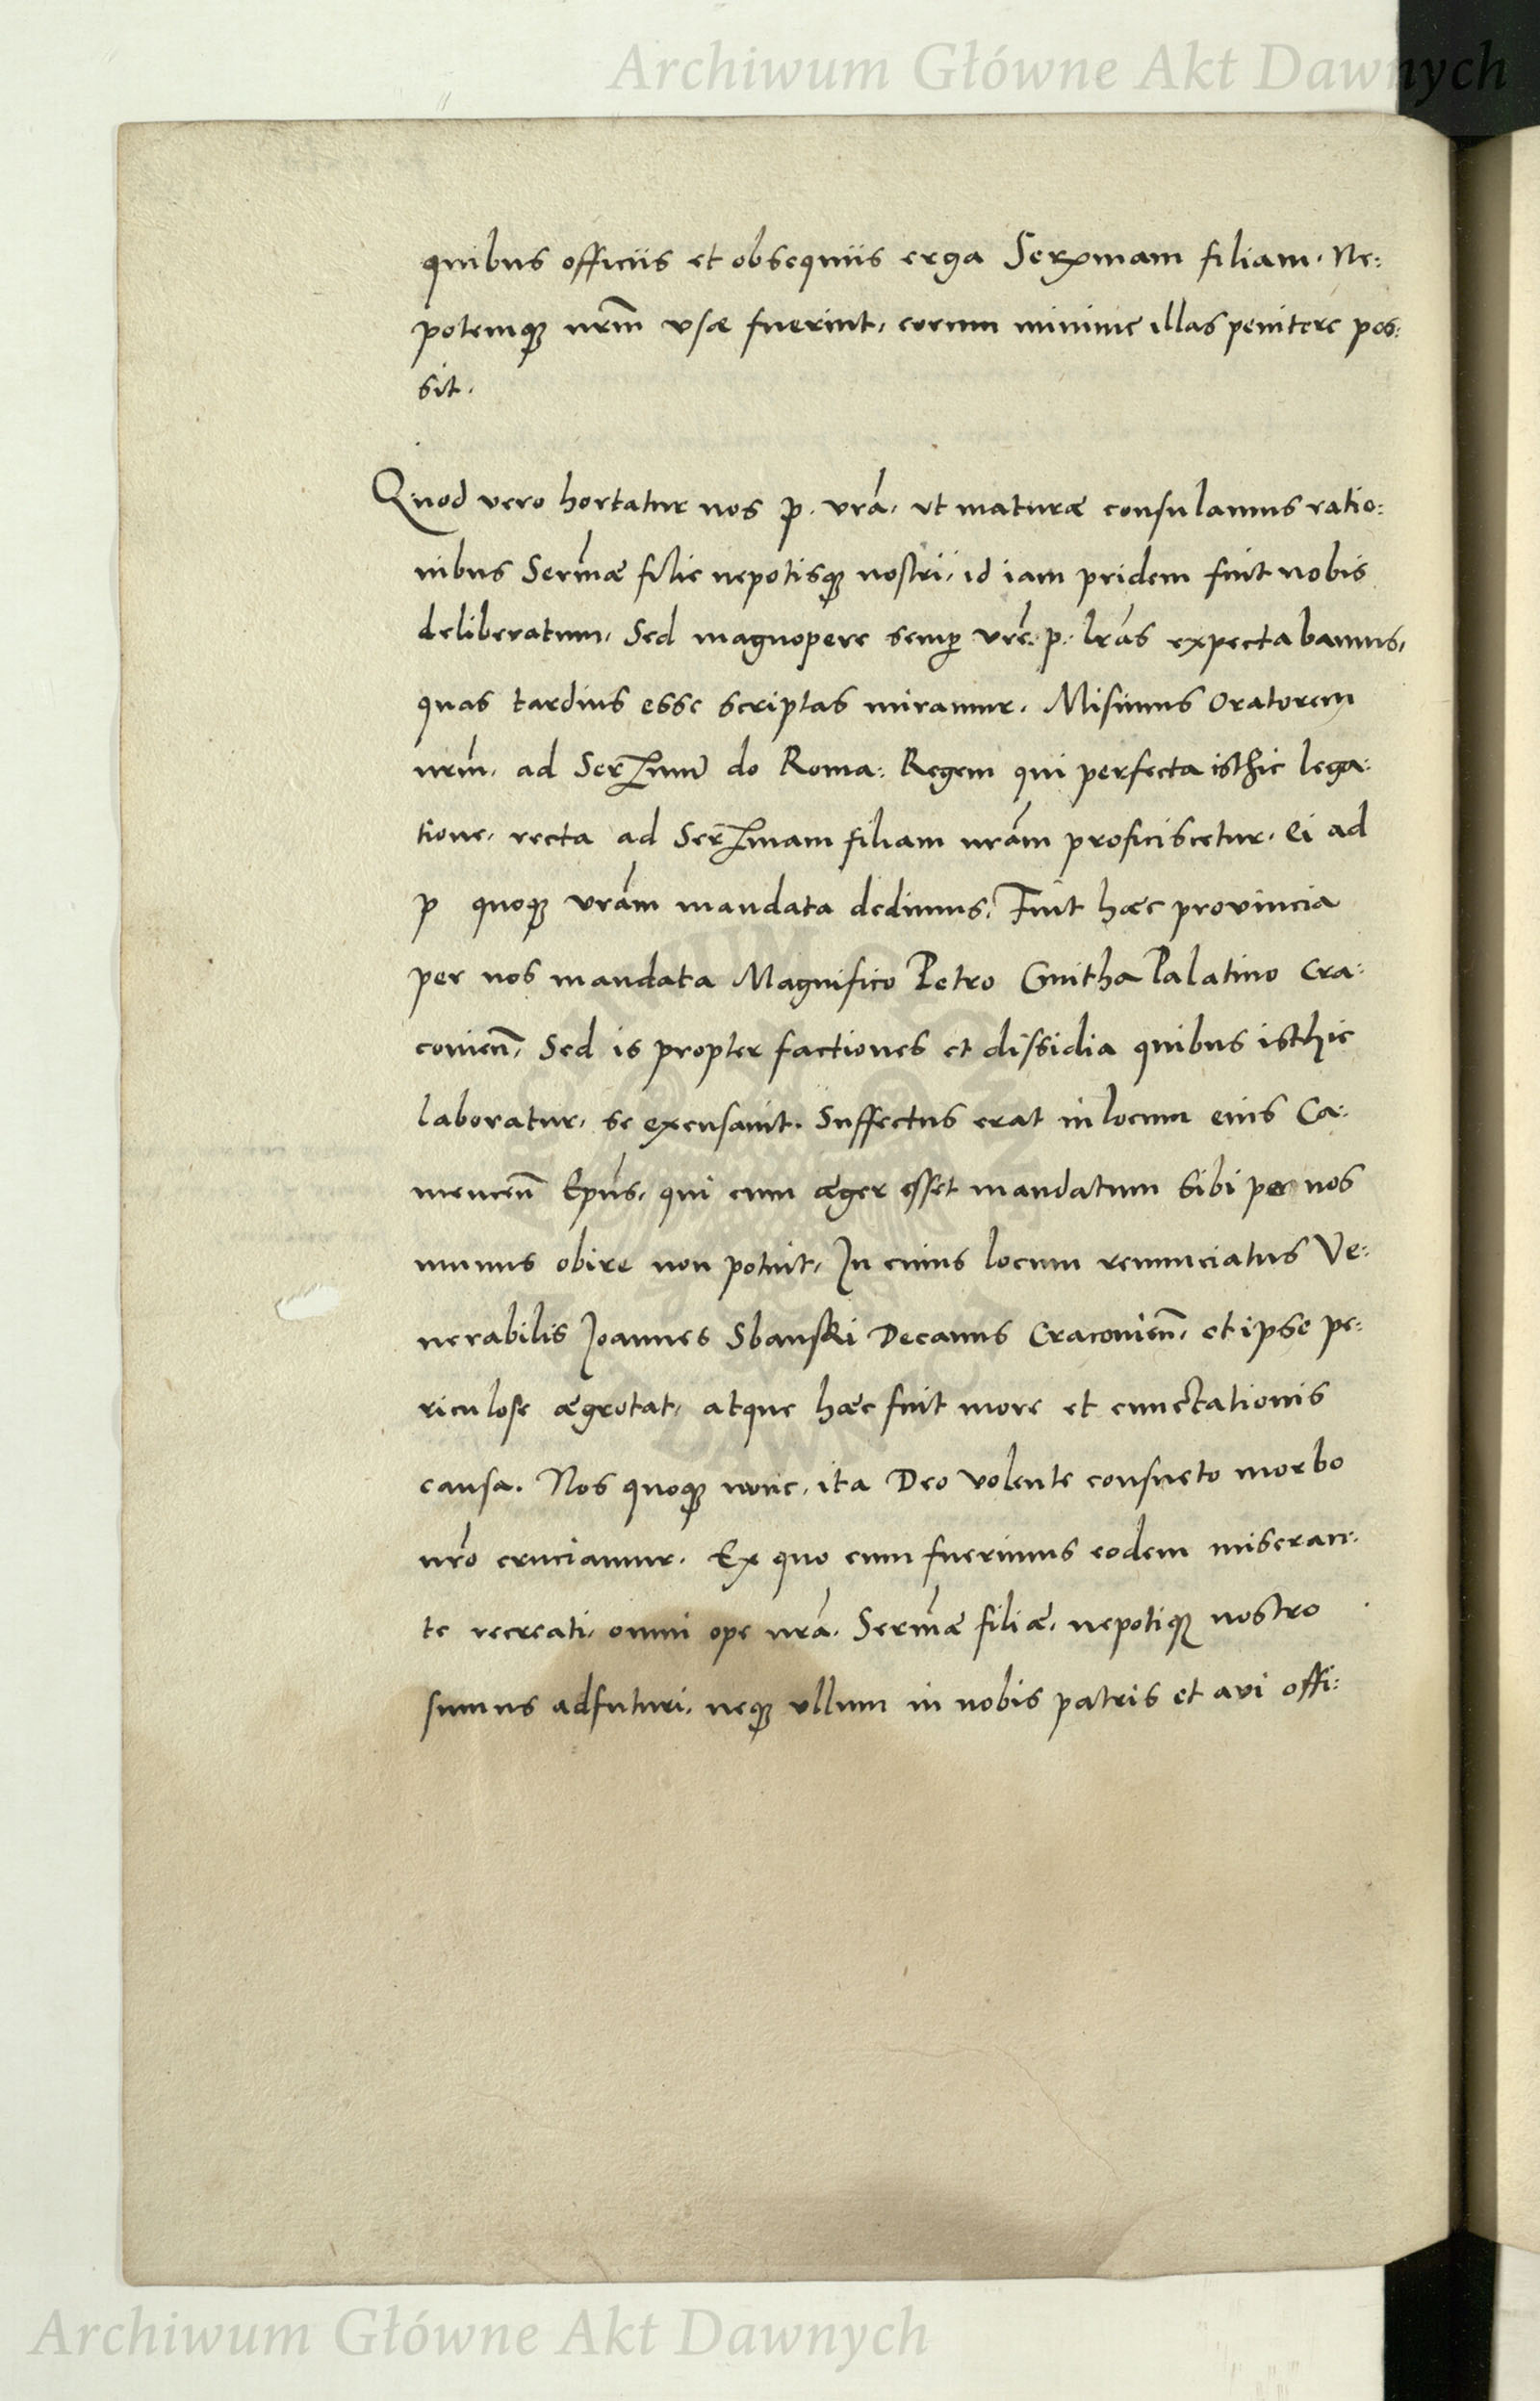 Archiwum Główne Akt Dawnych
quibus officiis et obsequiis erga Serx̄mam filiam. Ne:
potemqꝫ nrm̄ vsæ fuerint, eorum minime illas penitere pos:
sit.
Quod vero hortatur nos p. vrā, vt maturæ consulamus ratio:
nibus Serm̄æ filie nepotisqꝫ nostri, id iam pridem fuit nobis
deliberatum, Sed magnopere semp̱ vrē: p: lrās expectabamus,
quas tardius esse scriptas miramur. Misimus Oratorem
nrm̄, ad Serx̄mum do Roma: Regem qui perfecta isthic lega:
tione, recta ad Serx̄mam filiam nrām proficiscetur. Ei ad
p quoqꝫ vrām mandata dedimus, Fuit hæc provincia
per nos mandata Magnifico Petro Gmitha Palatino Cra:
couieñ, Sed is propter factiones et dissidia quibus isthic
laboratur, se excusauit. Suffectus erat in locum eius Ca:
meneceñ Ep̄us, qui cum æger esset mandatum sibi per nos
munus obire non potuit, In cuius locum renunciatus Ve:
nerabilis Joannes Sbanski Decanus Cracouieñ, et ipse pe:
riculose ægrotat, atque hæc fuit more et cunctationis
causa. Nos quoqꝫ nunc, ita Deo volente consueto morbo
nrō cruciamur. Ex quo cum fuerimus eodem miseran:
te recreati, omni ope nrā, Serm̄æ filiæ, nepotiqꝫ nostro
sumus adfuturi, neqꝫ vllum in nobis patris et avi offi:
Archiwum Główne Akt Dawnych